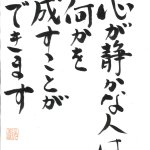 心が静かな人は
何かを
成すことが
できます